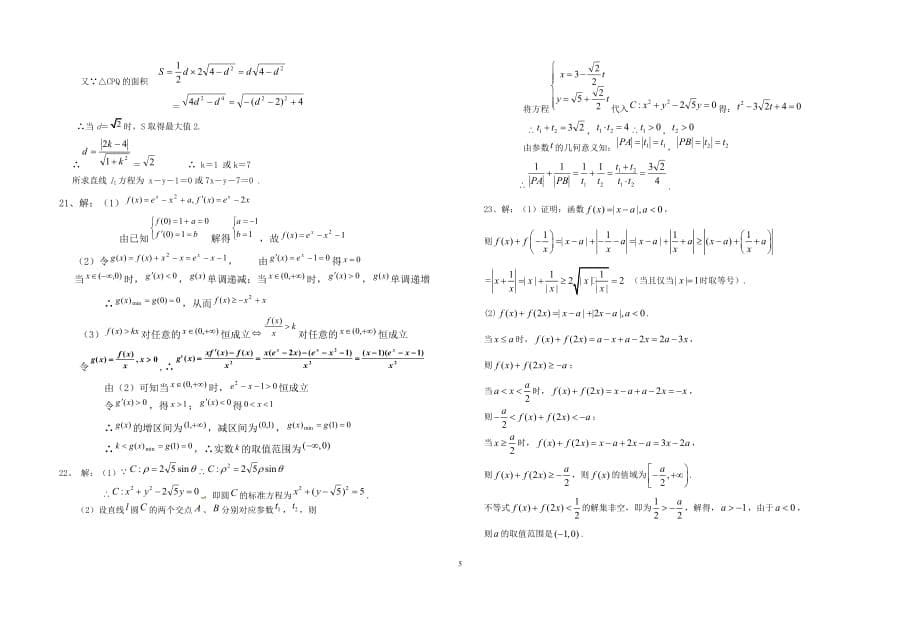 又∵△CPQ的面积 S=\frac{1}{2}d×2\sqrt{4-d^2}=d\sqrt{4-d^2}
=\sqrt{4d^2-d^4}=\sqrt{-(d^2-2)^2+4}
∴当d=\sqrt{2}时,S取得最大值2.
∴ d=\frac{|2k-4|}{\sqrt{1+k^2}}=\sqrt{2} ∴ k=1 或k=7
所求直线 l_1 方程为 x-y-1=0或7x-y-7=0 .
21、解:(1) f(x)=e^x-x^2+a,f'(x)=e^x-2x
由已知 \begin{cases}f(0)=1+a=0\\f'(0)=1=b\end{cases} 解得 \begin{cases}a=-1\\b=1\end{cases} ,故 f(x)=e^x-x^2-1
(2)令 g(x)=f(x)+x^2-x=e^x-x-1 , 由 g'(x)=e^x-1=0 得 x=0
当 x∈(-∞,0) 时, g'(x)<0 , g(x) 单调递减;当 x∈(0,+∞) 时, g'(x)>0 , g(x) 单调递增
∴ g(x)_{min}=g(0)=0 ,从而 f(x)≥-x^2+x
(3) f(x)>kx 对任意的 x∈(0,+∞) 恒成立 ⇔ \frac{f(x)}{x}>k 对任意的 x∈(0,+∞) 恒成立
令 g(x)=\frac{f(x)}{x},x>0 ,∴ g'(x)=\frac{xf'(x)-f(x)}{x^2}=\frac{x(e^x-2x)-(e^x-x^2-1)}{x^2}=\frac{(x-1)(e^x-x-1)}{x^2}
由(2)可知当 x∈(0,+∞) 时, e^x-x-1>0 恒成立
令 g'(x)>0 ,得 x>1 ; g'(x)<0 得 0<x<1
∴ g(x) 的增区间为 (1,+∞) ,减区间为 (0,1) , g(x)_{min}=g(1)=0
∴ k<g(x)_{min}=g(1)=0 ,∴实数 k 的取值范围为 (-∞,0)
22、 解:(1)∵ C:ρ=2\sqrt{5}sinθ ∴ C:ρ^2=2\sqrt{5}ρsinθ
∴ C:x^2+y^2-2\sqrt{5}y=0 ,即圆 C 的标准方程为 x^2+(y-\sqrt{5})^2=5 .
(2)设直线 l 圆 C 的两个交点 A 、 B 分别对应参数 t_1 , t_2 ,则
将方程 \begin{cases}x=3-\frac{\sqrt{2}}{2}t\\y=\sqrt{5}+\frac{\sqrt{2}}{2}t\end{cases} 代入 C:x^2+y^2-2\sqrt{5}y=0 得: t^2-3\sqrt{2}t+4=0
∴ t_1+t_2=3\sqrt{2} , t_1·t_2=4 ∴ t_1>0 , t_2>0
由参数 t 的几何意义知: |PA|=|t_1|=t_1 , |PB|=|t_2|=t_2
∴ \frac{1}{|PA|}+\frac{1}{|PB|}=\frac{1}{t_1}+\frac{1}{t_2}=\frac{t_1+t_2}{t_1·t_2}=\frac{3\sqrt{2}}{4} .
23、解:(1)证明:函数 f(x)=|x-a|,a<0 ,
则 f(x)+f(-\frac{1}{x})=|x-a|+|-\frac{1}{x}-a|=|x-a|+|\frac{1}{x}+a|≥|(x-a)+(\frac{1}{x}+a)|
=|x+\frac{1}{x}|=|x|+\frac{1}{|x|}≥2\sqrt{|x|·\frac{1}{|x|}}=2 (当且仅当|x|=1时取等号).
⑵ f(x)+f(2x)=|x-a|+|2x-a|,a<0 .
当 x≤a 时, f(x)+f(2x)=a-x+a-2x=2a-3x ,
则 f(x)+f(2x)≥-a ;
当 a<x<\frac{a}{2} 时, f(x)+f(2x)=x-a+a-2x=-x ,
则 -\frac{a}{2}<f(x)+f(2x)<-a ;
当 x≥\frac{a}{2} 时, f(x)+f(2x)=x-a+2x-a=3x-2a ,
则 f(x)+f(2x)≥-\frac{a}{2} ,则 f(x) 的值域为 [-\frac{a}{2},+∞) .
不等式 f(x)+f(2x)<\frac{1}{2} 的解集非空,即为 \frac{1}{2}>-\frac{a}{2} ,解得, a>-1 ,由于 a<0 ,
则 a 的取值范围是 (-1,0) .
5